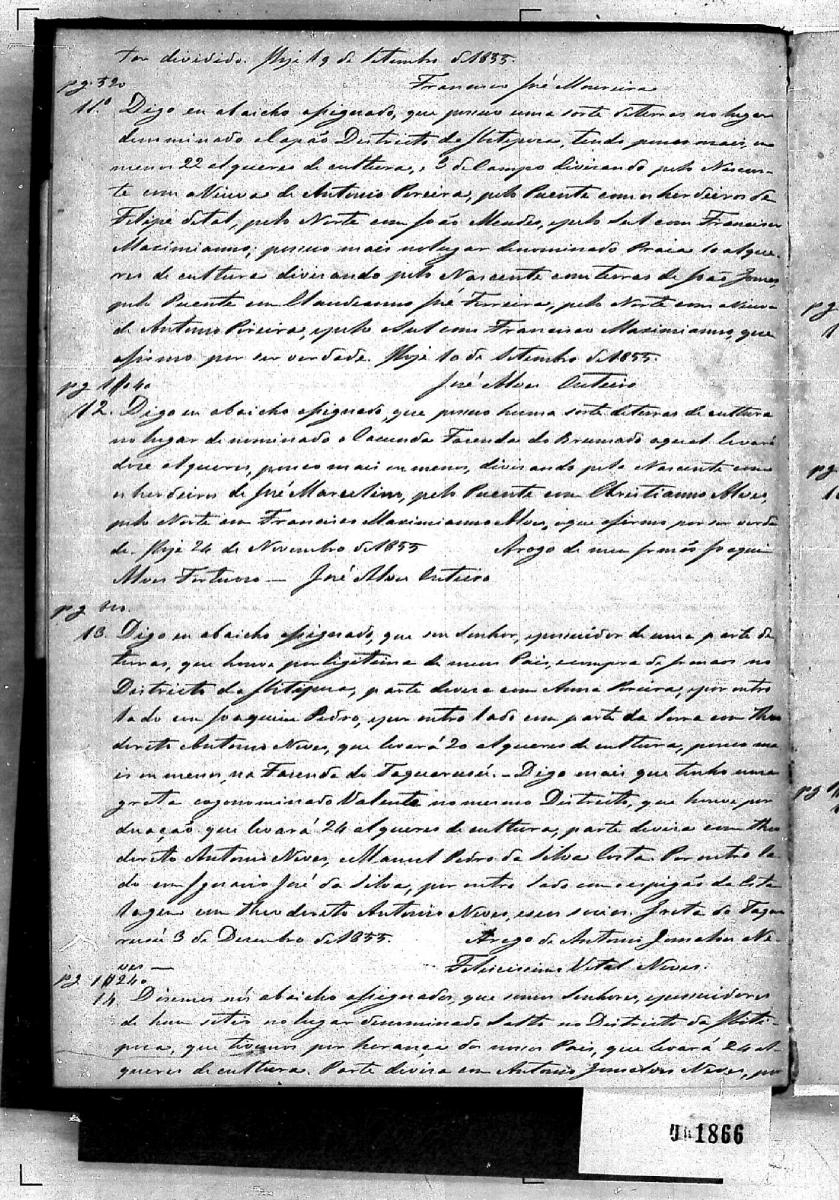 tar dividido. Hoje 19 de Setembro de 1855.
Francisco José Moureira
pg. 520
11.º Digo eu abaicho assignado, que possuo uma sorte de terras no lugar
denominado Capão Districto da Ibitipoca, tendo pouco mais, ou
menos 22 alqueres de cultura, e 3 de Campo divisando pelo Nascen-
te com a Viuva de Antonio Pereira, pelo Puente com os herdeiros de
Felipe de tal, pelo Norte com João Mendes, e pelo Sul com Francisco
Maximianno; possuo mais no lugar denominado Praia 10 alque-
res de cultura divisando pelo Nascente com terras de João Gomes
pelo Puente com Claudeanno José Ferreira, pelo Norte com a Viuva
de Antonio Pireira, e pelo Sul com Francisco Maximianno, que
afirmo por ser verdade. Hoje 10 de Setembro de 1855.
José Alves Outeiro
12. Digo eu abaicho assignado, que possuo huma sorte de terras de cultura
no lugar denominado a Cacunda Fazenda do Brumado a qual levará
doze alqueres, pouco mais ou menos, divisando pelo Nascente com
os herdeiros de José Marcelino, pelo Puente com Christianno Alves,
pelo Norte com Francisco Maximianno Alves, e que afirmo por ser verda
de. Hoje 24 de Novembro de 1855 Arogo de meu Irmão Joaquim
Alves Fortuozo — José Alves Outeiro
13. Digo eu abaicho assignado, que sou Senhor, e possuidor de uma parte de
terras, que houve por ligitima de meus Pais, e compra de no
Districto da Ibitipoca, parte devisa com Anna Pereira, e por outro
lado com Joaquim Pedro, e por outro lado em parte da Serra com Theo
direto Antonio Neves, que levará 20 alqueres de cultura, pouco ma
is ou menos, na Fazenda do Taquarussú. — Digo mais que tenho uma
greta cognominado Valente no mesmo Districto, que houve por
duação que levará 24 alqueres de cultura, parte devisa com Theo
direto Antonio Neves, e Manuel Pedro da Silva Costa. Por outro la-
do com Ignacio José da Silva, por outro lado com o espigão da
com Theodireto Antonio Neves, e seus socios. Greta do Taqua
russú 3 de Dezembro de 1855. Arogo de Antonio Gonsalves Ne-
ves — Felicissimo Vital Neves.
14. Disemos nós abaicho assignados, que somos Senhores, e possuidores
de hum setio no lugar denominado Salto no Districto da Ibiti-
poca, que tivemos por herança de nossos Pais, que levará 24 al-
queres de cultura. Parte devisa com Antonio Gonsalves Neves, por
1866